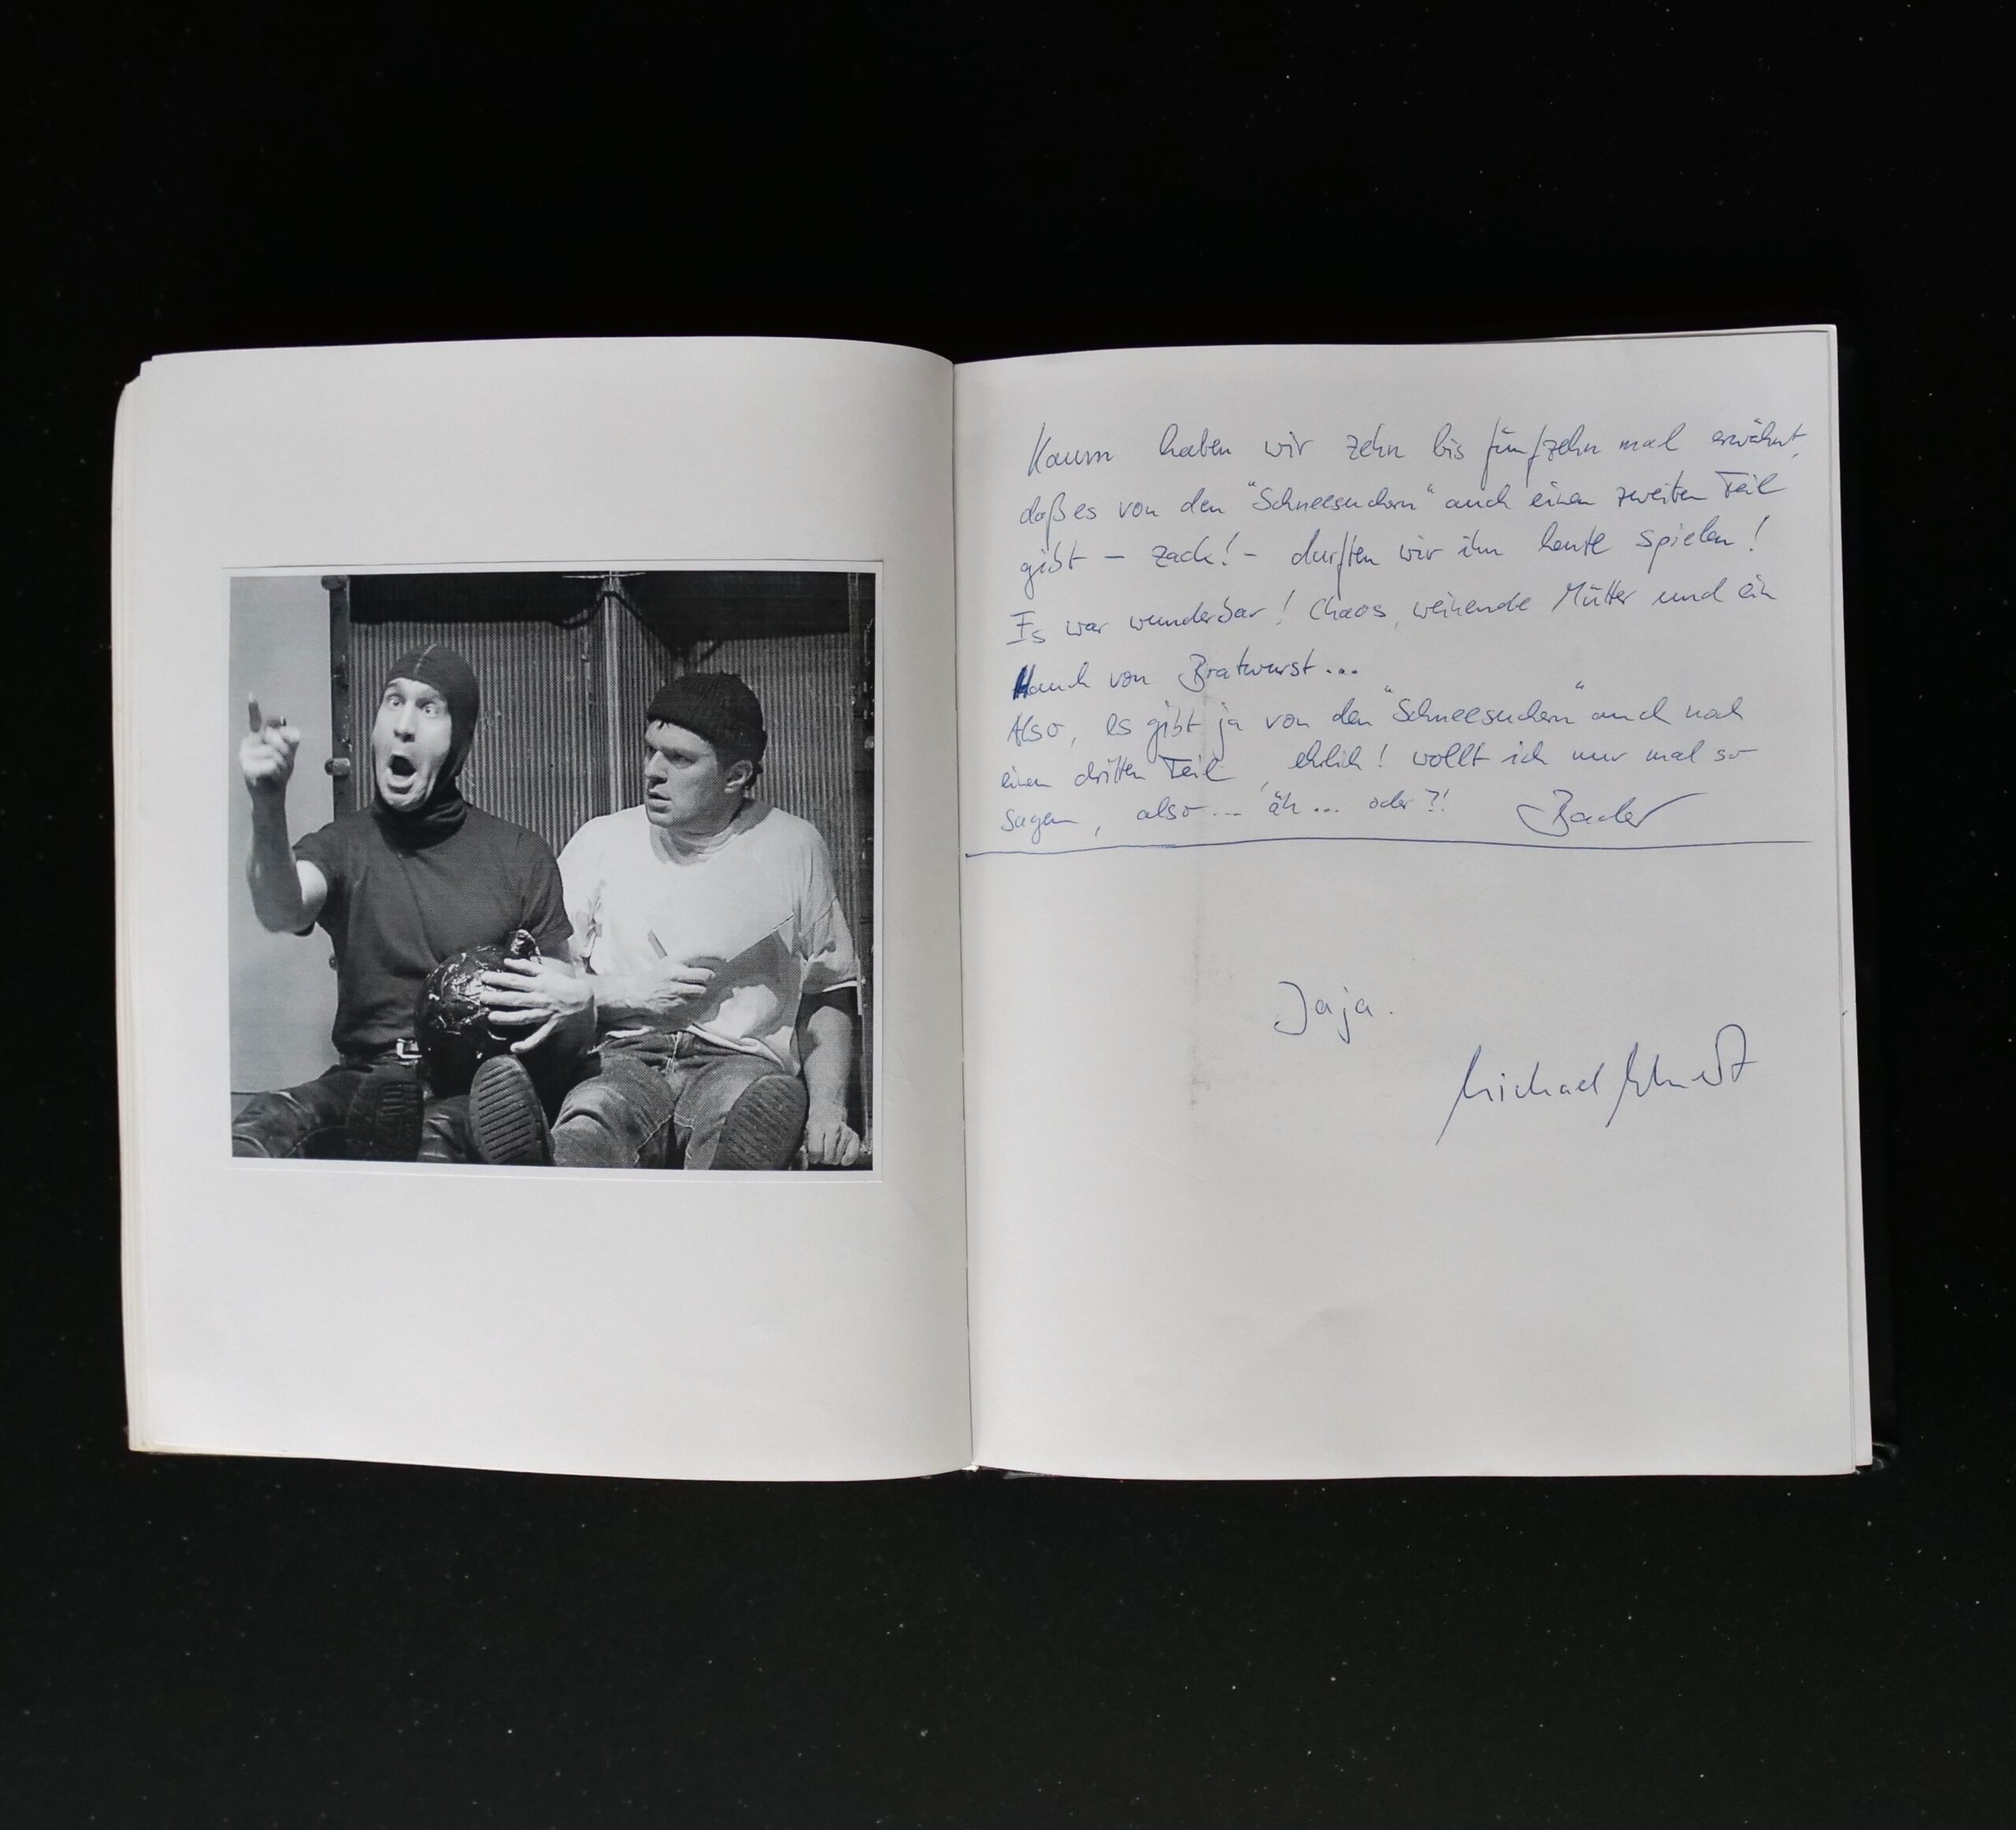 Kaum haben wir zehn bis fünfzehn mal erwähnt,
daß es von den "Schneesuchern" auch einen zweiten Teil
gibt – zack! – durften wir ihn heute spielen!
Es war wunderbar! Chaos, weinende Mütter und ein
Hauch von Bratwurst...
Also, es gibt ja von den "Schneesuchern" auch noch
einen dritten Teil, ehrlich! wollt ich nur mal so
sagen, also... äh... oder?! Bader
Jaja.
Michael